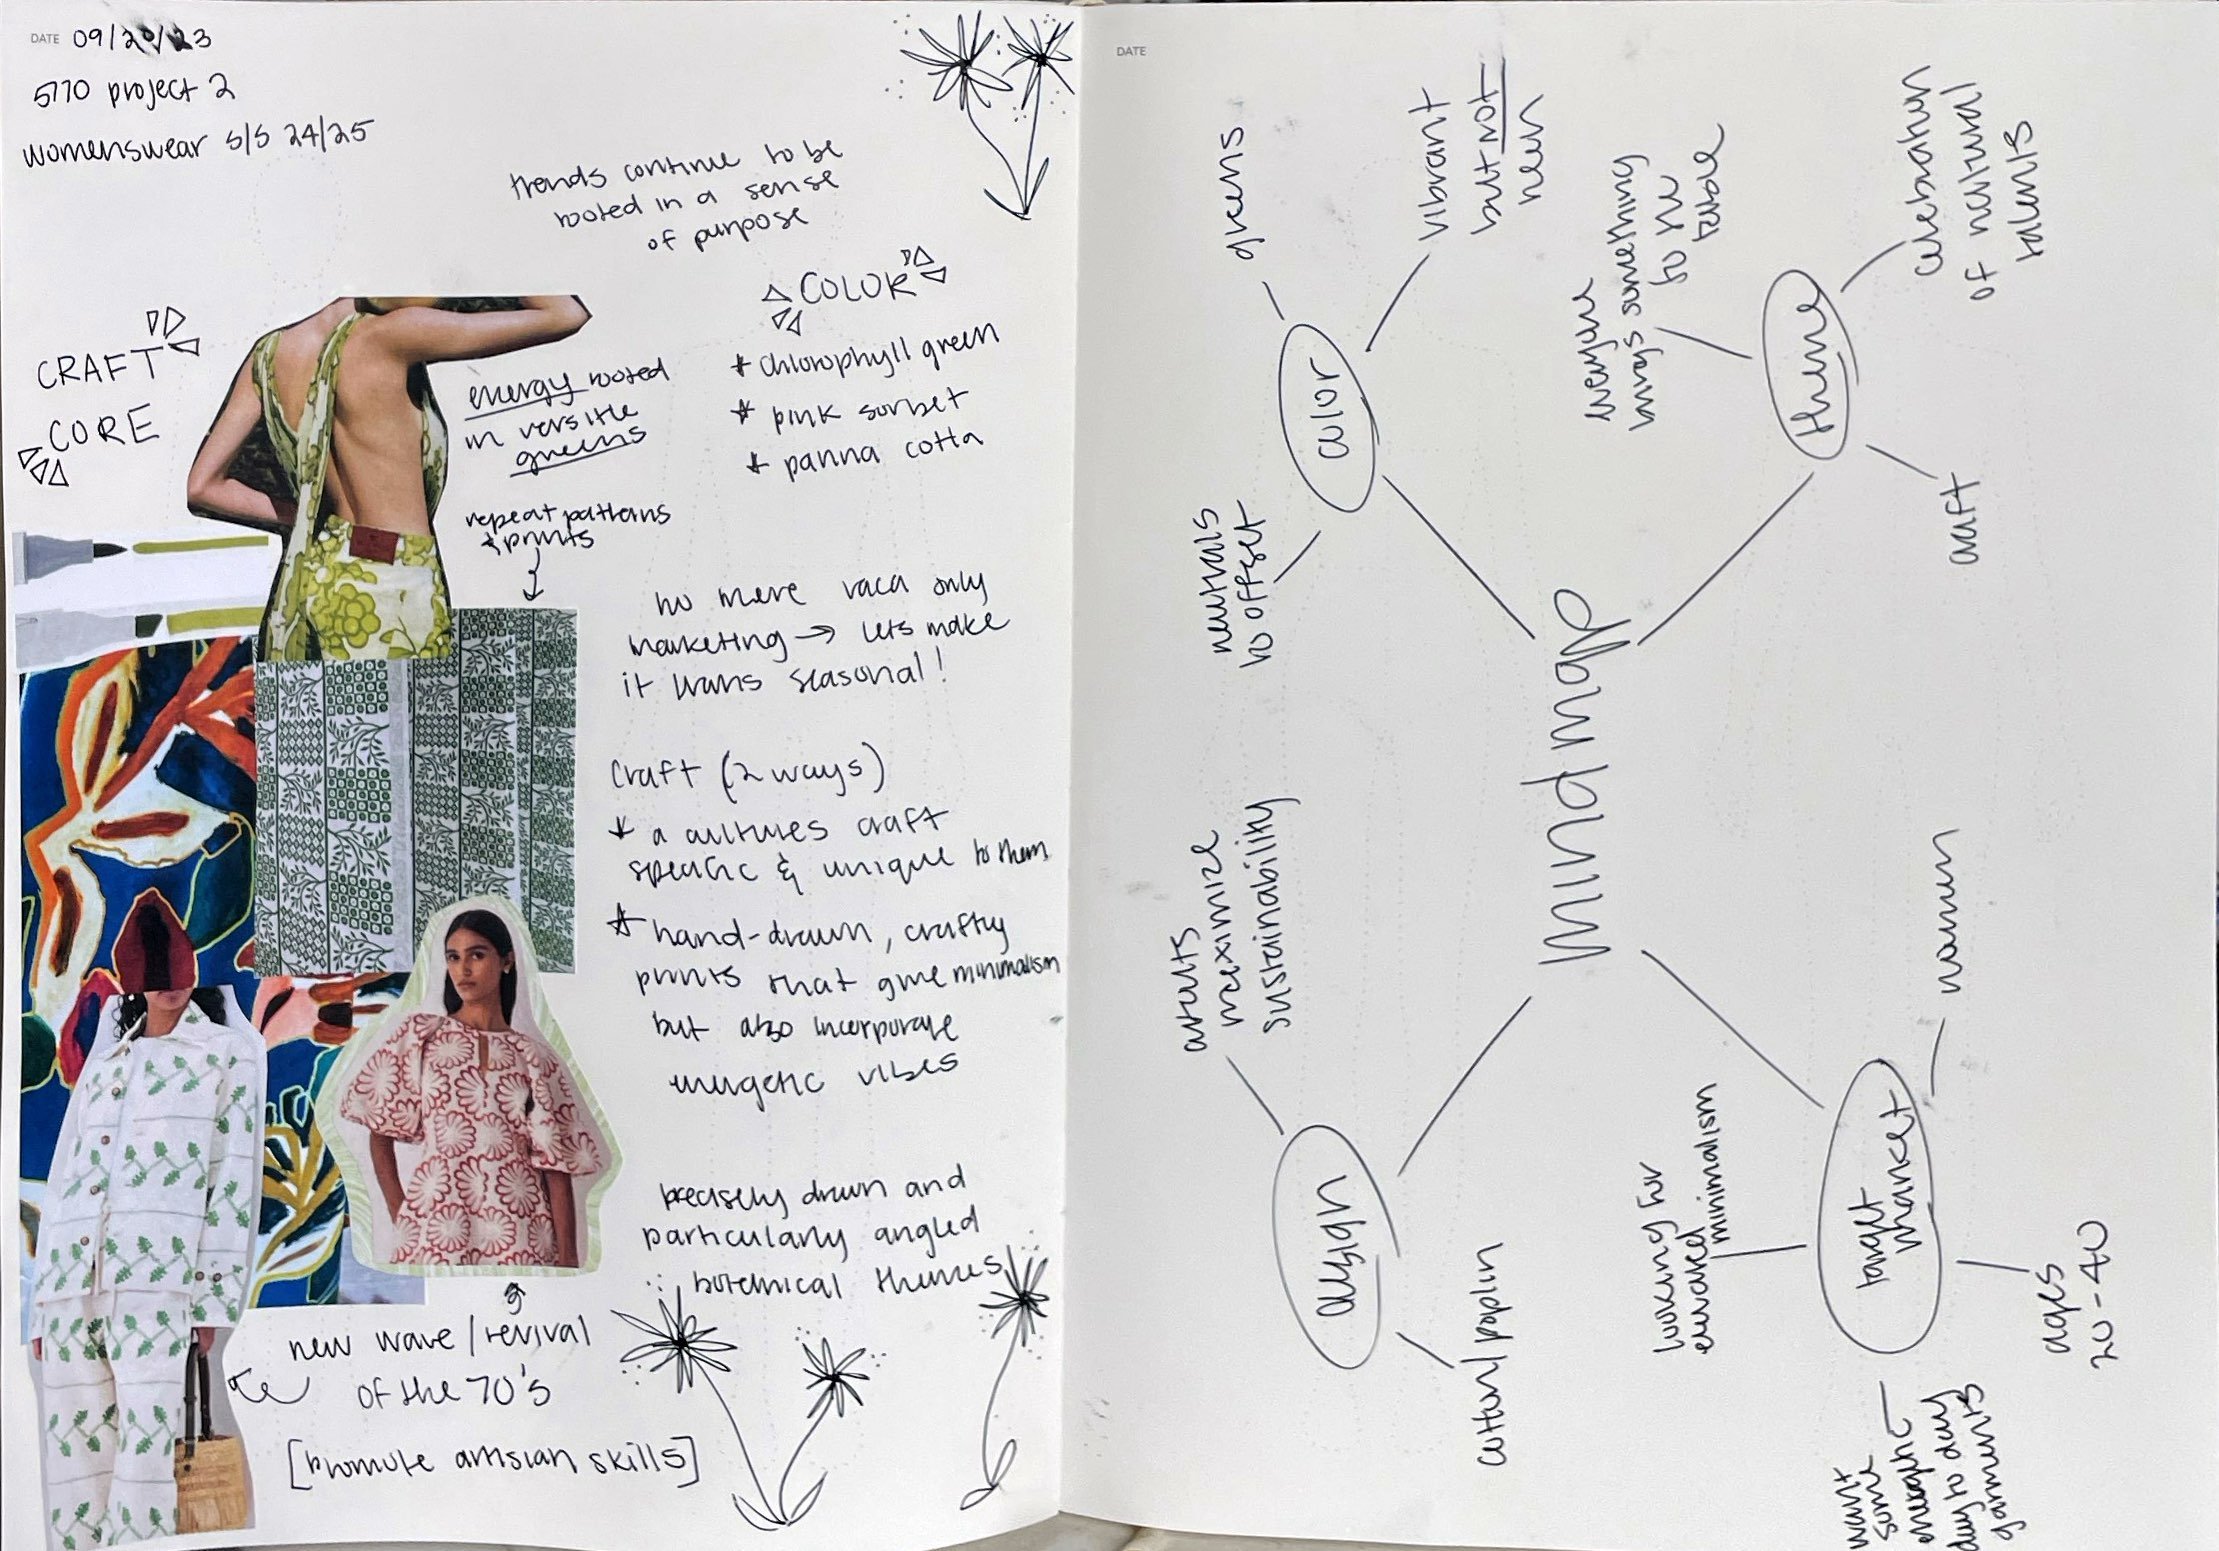 DATE 09/20/23
5770 project 2
womenswear s/s 24/25
trends continue to be
rooted in a sense
of purpose
CRAFT
CORE
COLOR
* chlorophyll green
* pink sorbet
* panna cotta
energy rooted
in versitle
greens
repeat patterns
& prints
no more vaca only
marketing → lets make
it trans seasonal!
Craft (2 ways)
* a cultures craft
specific & unique to them
* hand-drawn, crafty
prints that give minimalism
but also incorporate
energetic vibes
precisely drawn and
particularly angled
botanical themes
new wave / revival
of the 70's
[promote artisian skills]
DATE
mind map
color
greens
vibrant
but not
neon
neutrals
to offset
theme
everyone
brings something
to the
table
celebration
of cultural
talents
craft
design
artists
maximize
sustainability
cotton/poplin
target
market
women
looking for
elevated
minimalism
ages
20-40
want
some
energetic
day to day
garments